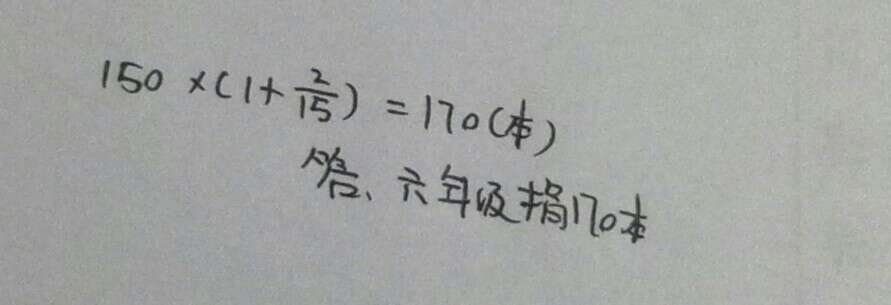 150×(1+2/15)=170(本)
答、六年级捐170本